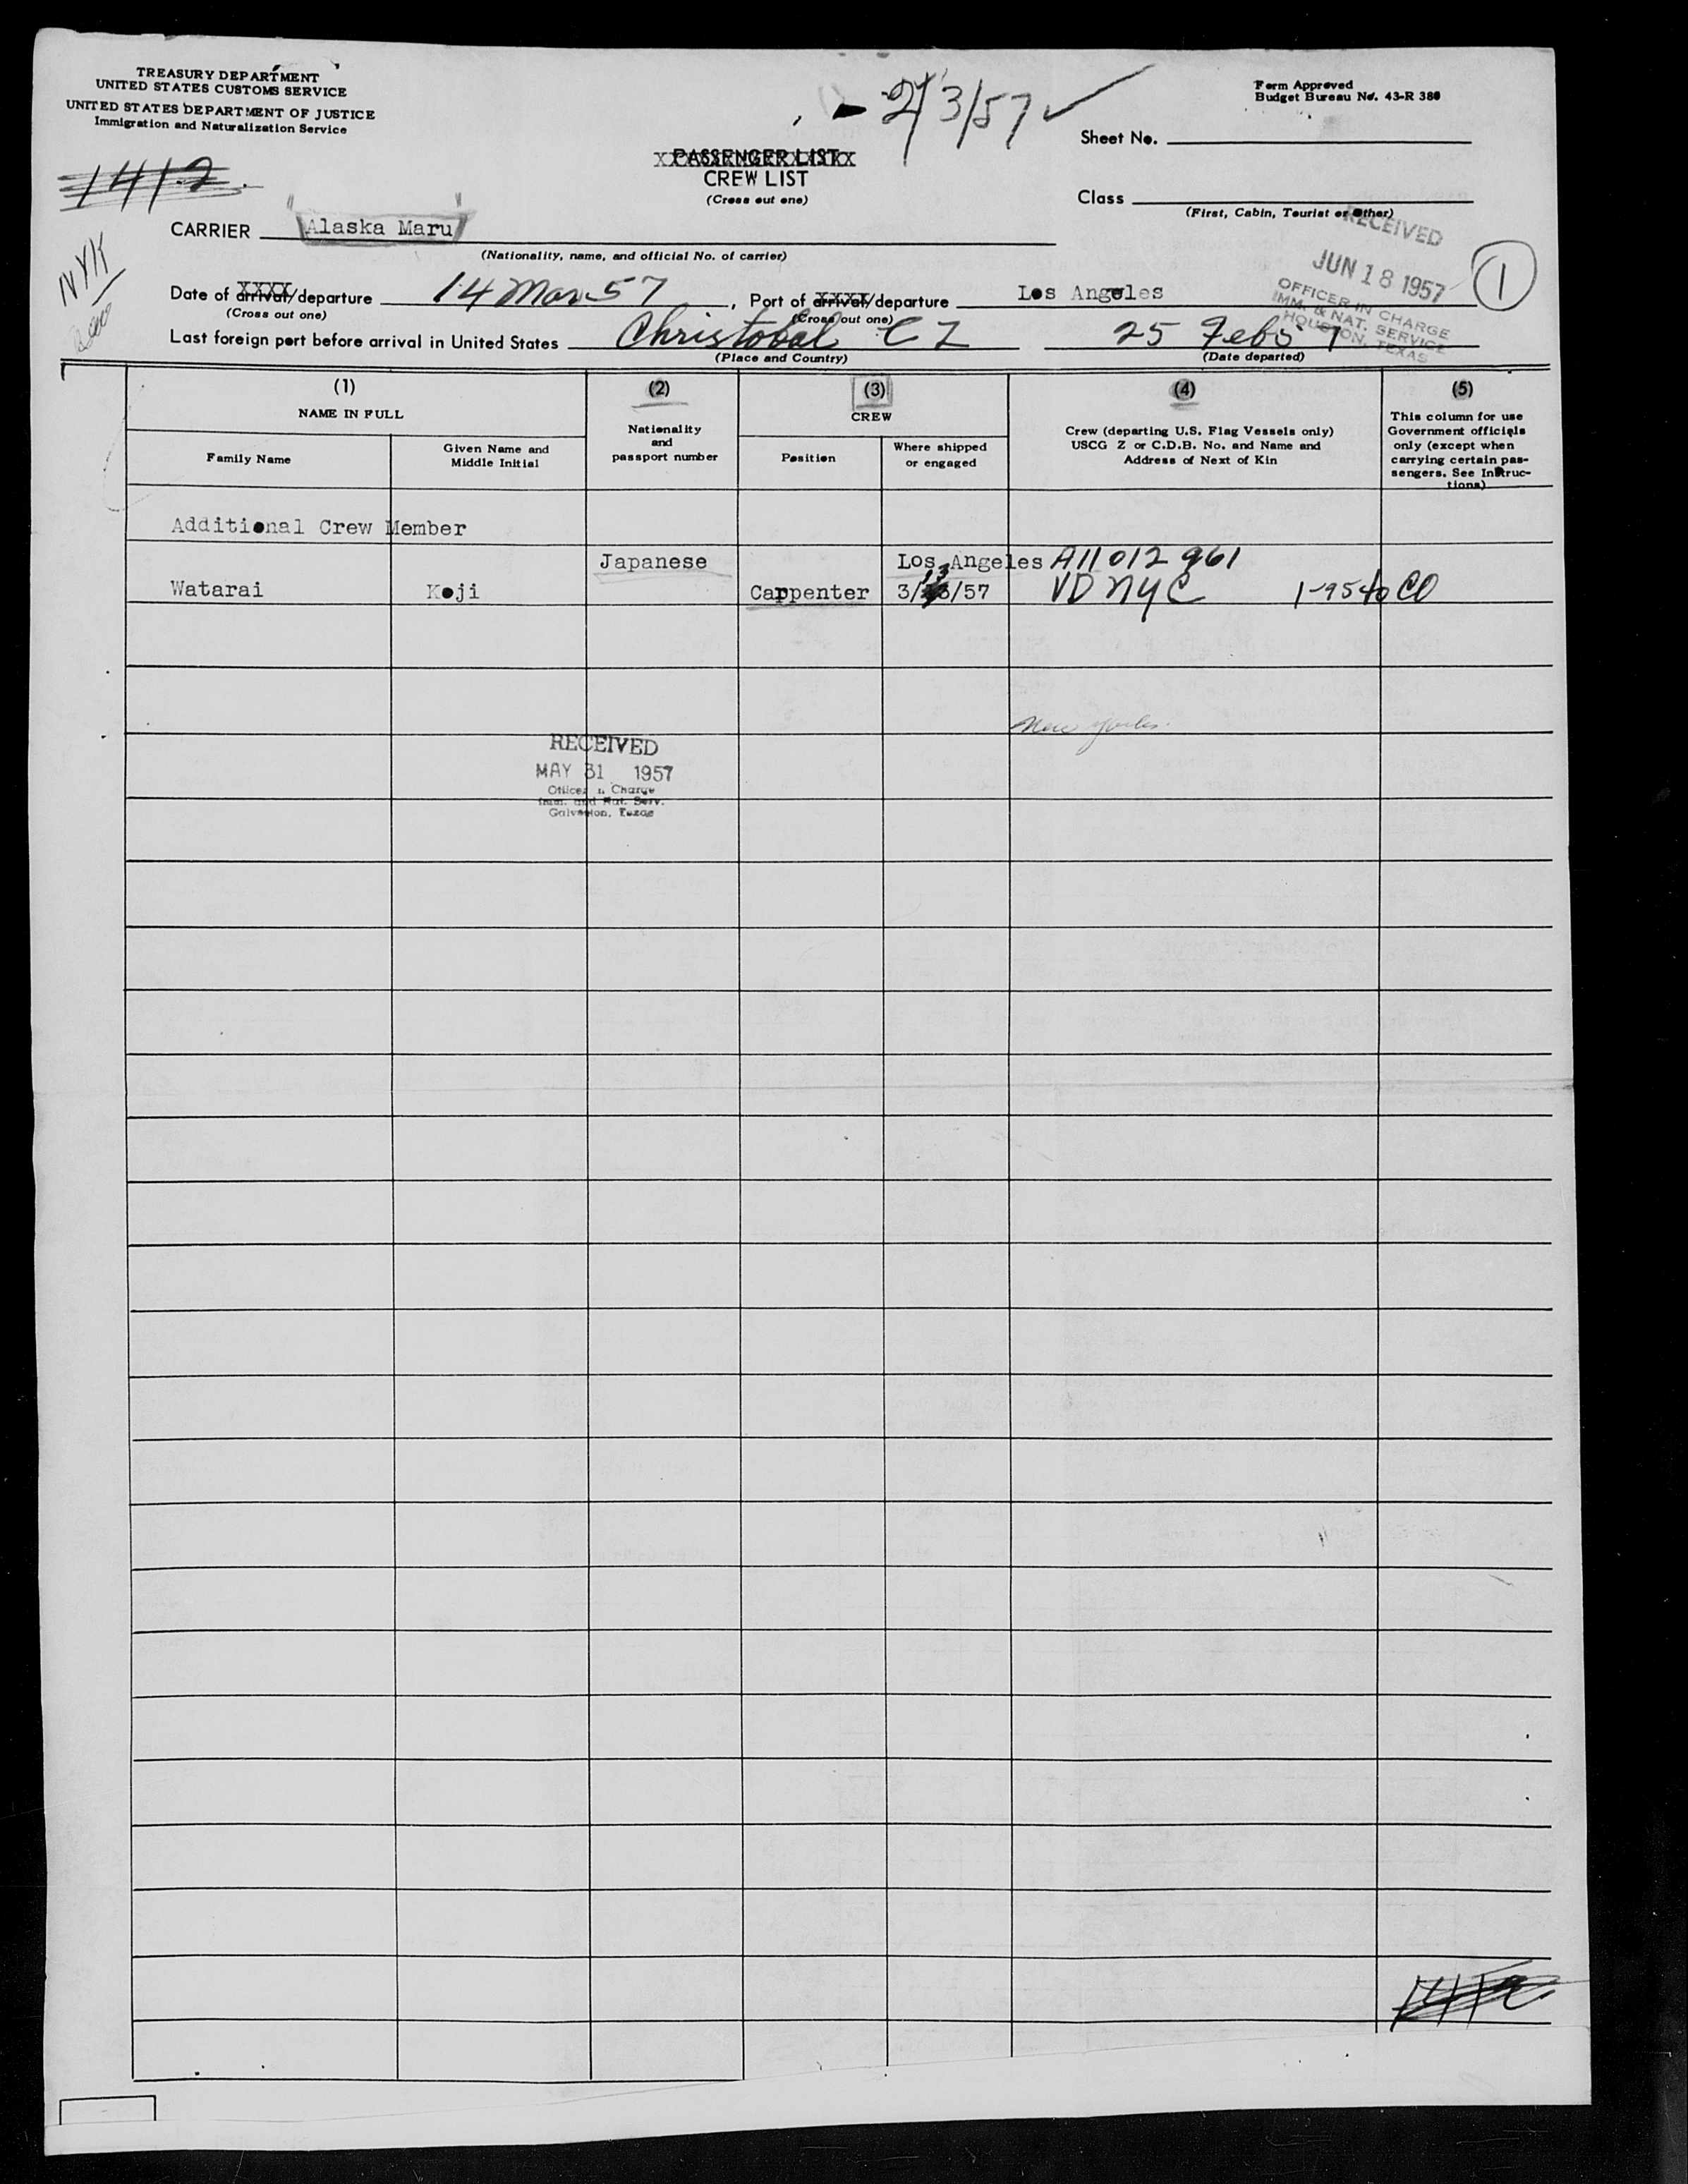 TREASURY DEPARTMENT
UNITED STATES CUSTOMS SERVICE
UNITED STATES DEPARTMENT OF JUSTICE
Immigration and Naturalization Service
1412
- 2/3/57 ✓
Form Approved
Budget Bureau No. 43-R 380
Sheet No.
PASSENGER LIST
CREW LIST
(Cross out one)
Class
(First, Cabin, Tourist or Other)
CARRIER "Alaska Maru"
(Nationality, name, and official No. of carrier)
NYK
RECEIVED
JUN 18 1957
OFFICER IN CHARGE
IMM. & NAT. SERVICE
HOUSTON, TEXAS
1
Date of arrival/departure 14 Mar 57, Port of arrival/departure Los Angeles
(Cross out one) (Cross out one)
Last foreign port before arrival in United States Christobal C Z 25 Feb 57
(Place and Country) (Date departed)
(1) (2) (3) (4) (5)
NAME IN FULL
Family Name
Given Name and
Middle Initial
Nationality
and
passport number
CREW
Position
Where shipped
or engaged
Crew (departing U.S. Flag Vessels only)
USCG Z or C.D.B. No. and Name and
Address of Next of Kin
This column for use
Government officials
only (except when
carrying certain pas-
sengers. See Instruc-
tions)
Additional Crew Member
Japanese Los Angeles A11 012 961
Watarai Koji Carpenter 3/13/57 VD NYC 1-95 to CO
New York
RECEIVED
MAY 31 1957
Officer in Charge
Imm. and Nat. Serv.
Galveston, Texas
1412